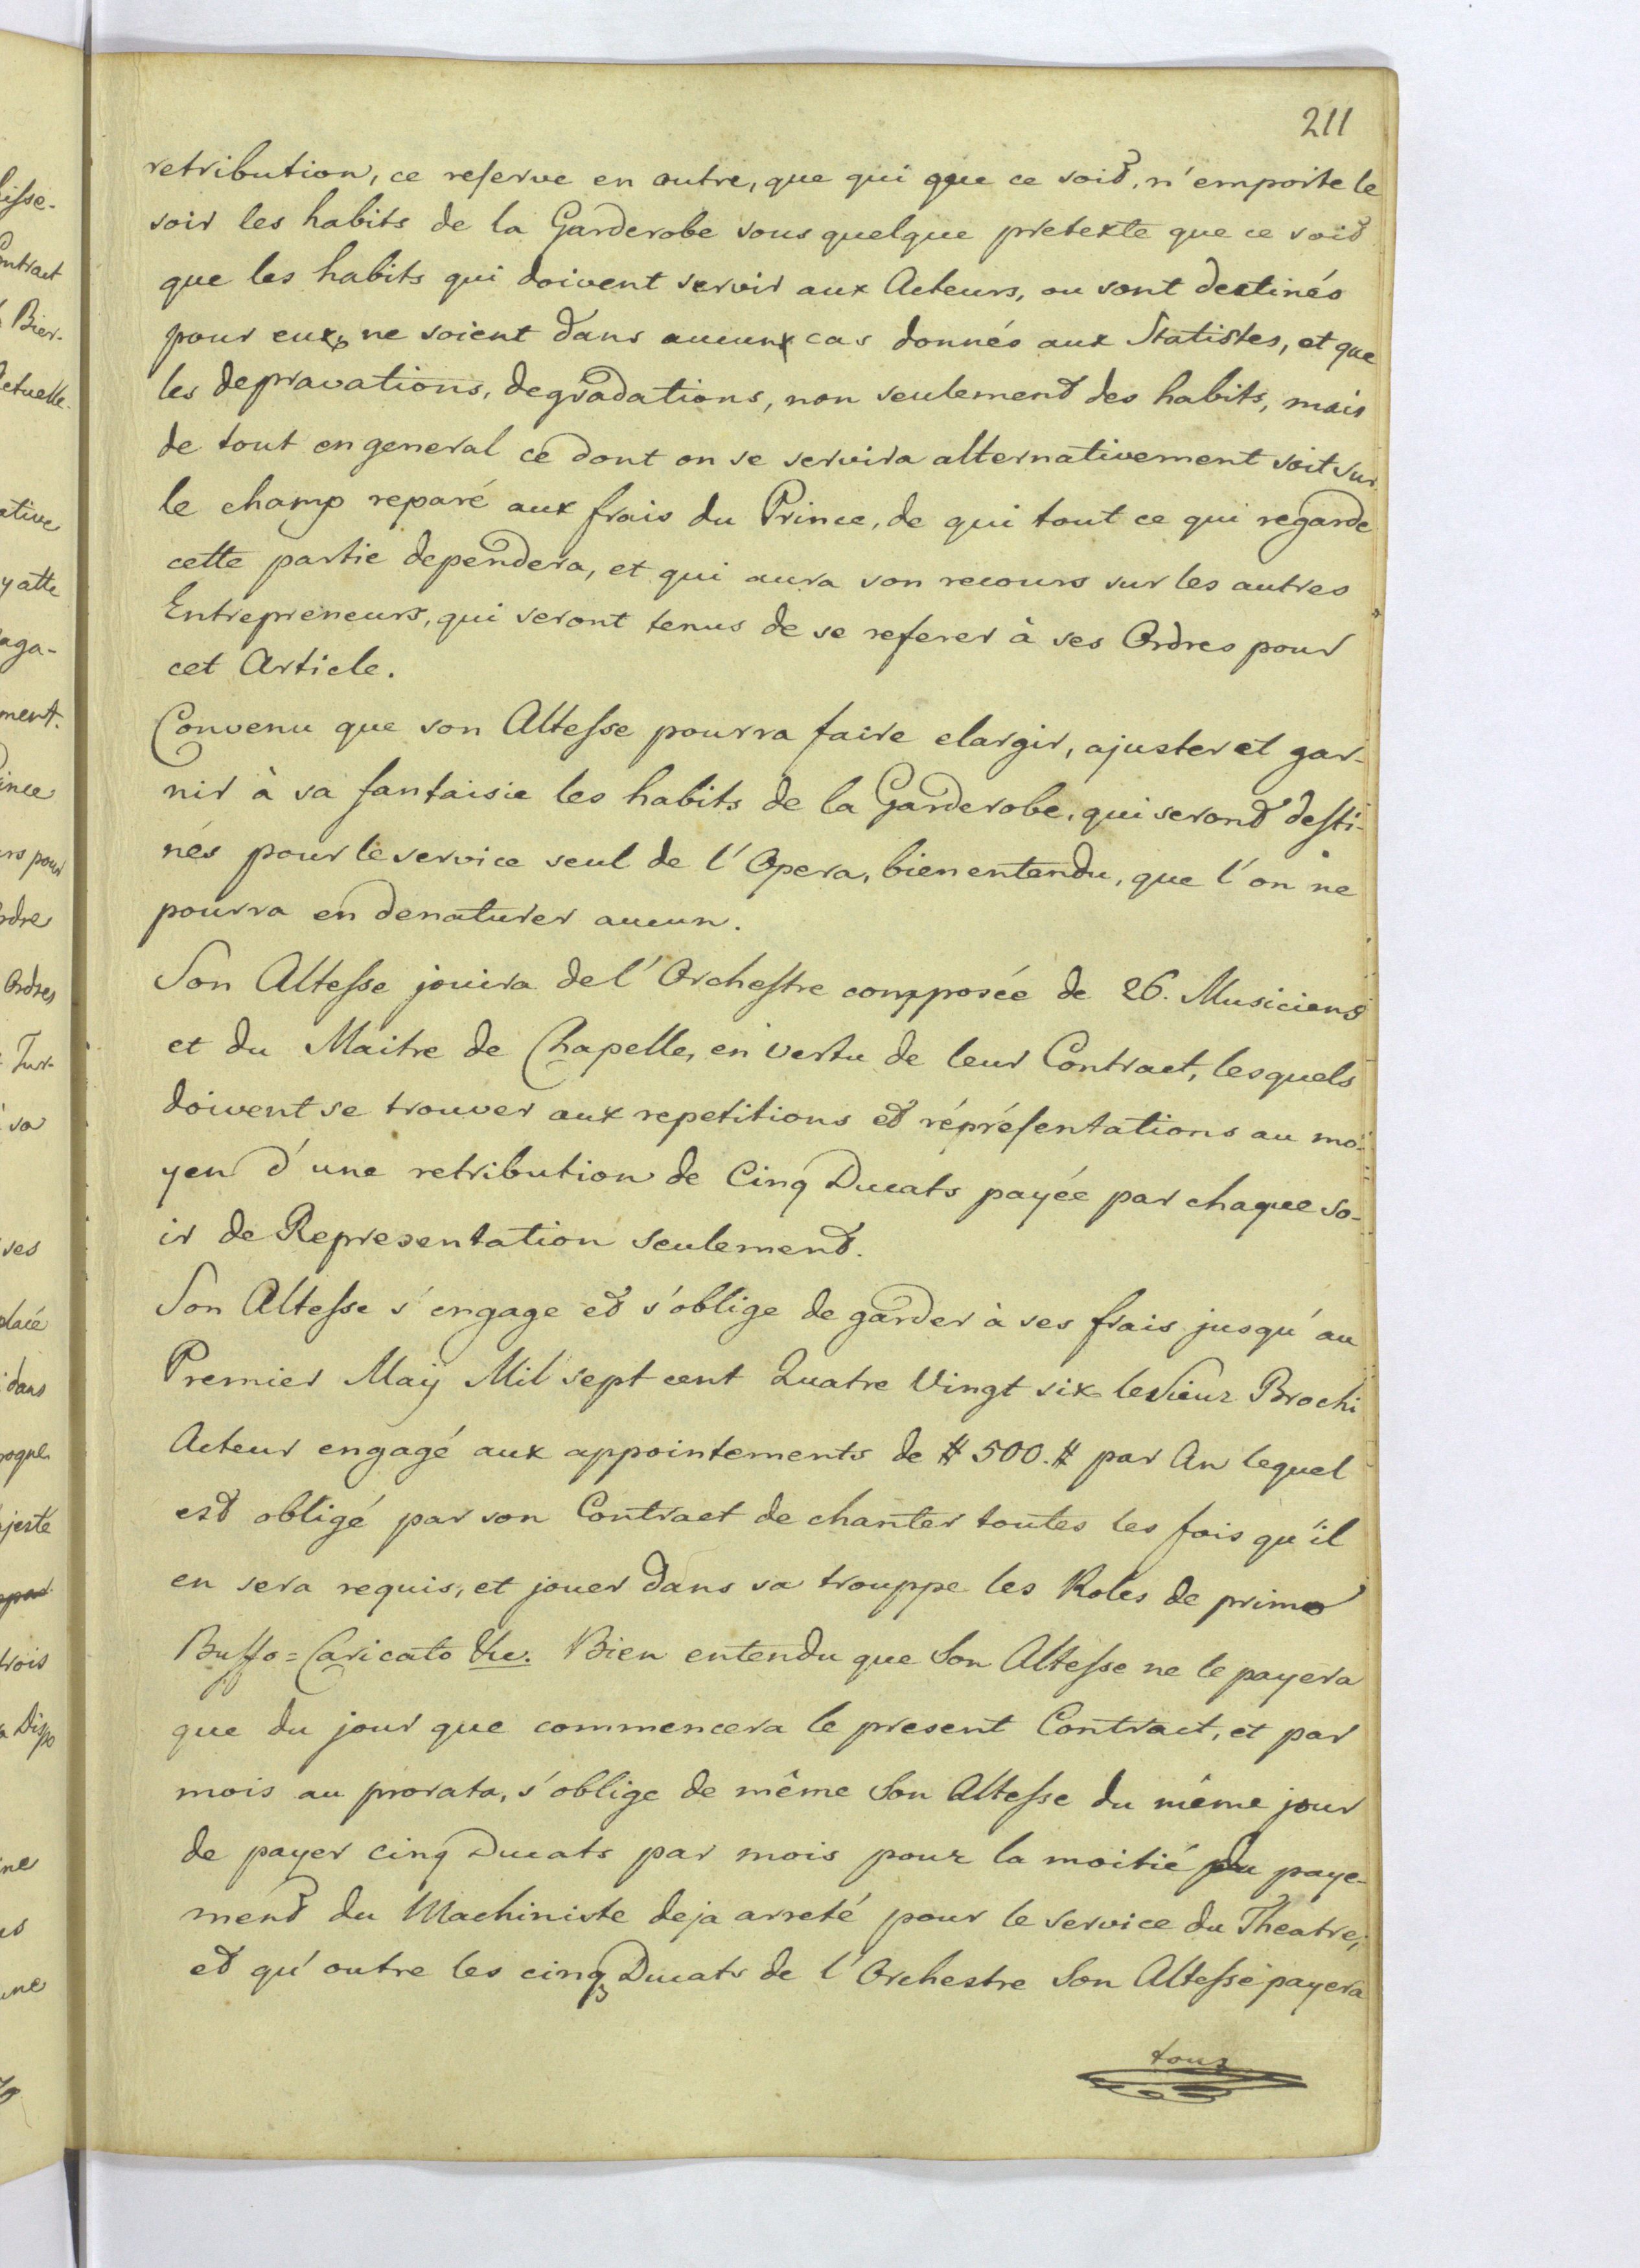 211
retribution, ce reserve en outre, que qui que ce soit, n'emporte le
soir les habits de la Garderobe sous quelque pretexte que ce soit
que les habits qui doivent servir aux Acteurs, ou sont destinés
pour eux, ne soient dans aucun cas donnés aux Statistes, et que
les depravations, degradations, non seulement des habits, mais
de tout en general ce dont on se servira alternativement soit sur
le champ reparé aux frais du Prince, de qui tout ce qui regarde
cette partie dependera, et qui aura son recours sur les autres
Entrepreneurs, qui seront tenus de se referer à ses Ordres pour
cet Article.
Convenu que son Altesse pourra faire elargir, ajuster et gar-
nir à sa fantaisie les habits de la Garderobe, qui seront desti-
nés pour le service seul de l'Opera, bien entendu, que l'on ne
pourra en denaturer aucun.
Son Altesse jouira de l'Orchestre composée de 26. Musiciens
et du Maitre de Chapelle, en vertu de leur Contract, lesquels
doivent se trouver aux repetitions et réprésentations au mo-
yen d'une retribution de Cinq Ducats payée par chaque so-
ir de Representation seulement.
Son Altesse s'engage et s'oblige de garder à ses frais jusqu'au
Premier Maÿ Mil sept cent Quatre Vingt six le Sieur Brochi
Acteur engagé aux appointements de # 500. # par An lequel
est obligé par son Contract de chanter toutes les fois qu'il
en sera requis, et jouer dans sa trouppe les Roles de primo
Buffo=Caricato &c. Bien entendu que Son Altesse ne le payera
que du jour que commencera le present Contract, et par
mois au prorata, s'oblige de même Son Altesse du même jour
de payer cinq Ducats par mois pour la moitié du paye-
ment du Machiniste deja arreté pour le service du Theatre,
et qu'outre les cinq Ducats de l'Orchestre Son Altesse payera
tous